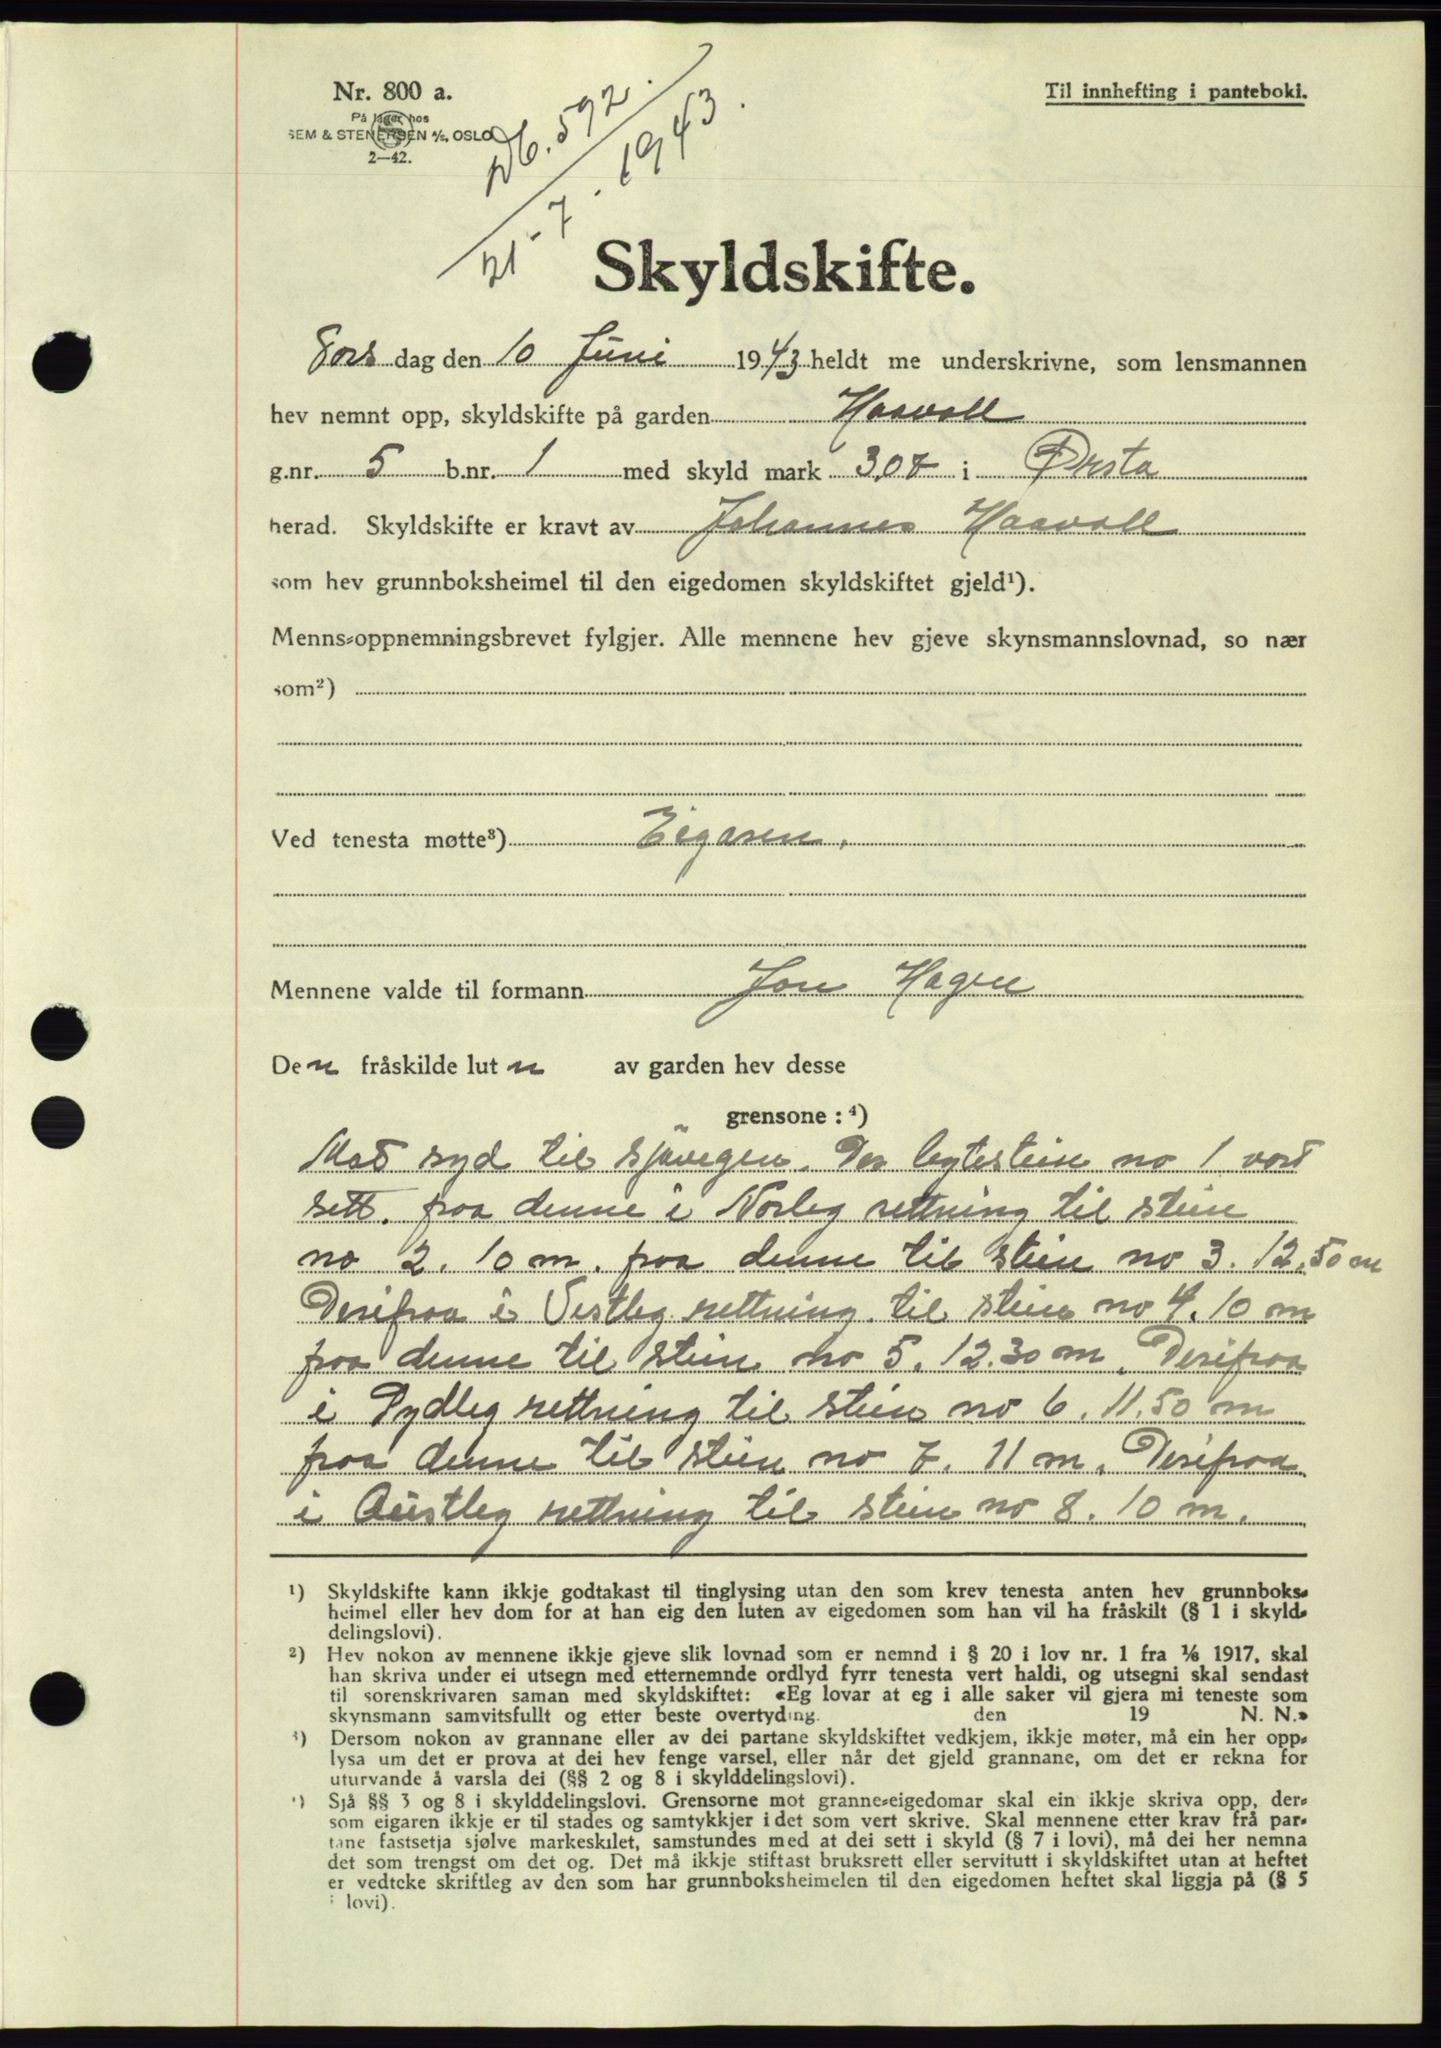 Nr. 800 a.
På lager hos
SEM & STENERSEN A/S, OSLO
2—42.
Til innhefting i panteboki.
Db. 592.
21-7-1943.
Skyldskifte.
Tors dag den 10 Juni 1943 heldt me underskrivne, som lensmannen
hev nemnt opp, skyldskifte på garden Haavoll
g.nr. 5 b.nr. 1 med skyld mark 3,07 i Ørsta
herad. Skyldskifte er kravt av Johannes Haavoll
som hev grunnboksheimel til den eigedomen skyldskiftet gjeld¹).
Menns-oppnemningsbrevet fylgjer. Alle mennene hev gjeve skynsmannslovnad, so nær
som²)
Ved tenesta møtte³) Eigaren.
Mennene valde til formann Jon Hagen
Den fråskilde luten av garden hev desse
grensone : ⁴)
Mot syd til sjøvegen. Der bytestein no 1 vort
sett. fraa denne i Norleg rettning til stein
no 2. 10 m. fraa denne til stein no 3. 12.50 m
Derifraa i Vestleg rettning til stein no 4. 10 m
fraa denne til stein no 5. 12.30 m. Derifraa
i Sydleg rettning til stein no 6. 11.50 m
fraa denne til stein no 7. 11 m. Derifraa
i Austleg rettning til stein no 8. 10 m.
¹) Skyldskifte kann ikkje godtakast til tinglysing utan den som krev tenesta anten hev grunnboks-
heimel eller hev dom for at han eig den luten av eigedomen som han vil ha fråskilt (§ 1 i skyld-
delingslovi).
²) Hev nokon av mennene ikkje gjeve slik lovnad som er nemnd i § 20 i lov nr. 1 fra 1/6 1917, skal
han skriva under ei utsegn med etternemnde ordlyd fyrr tenesta vert haldi, og utsegni skal sendast
til sorenskrivaren saman med skyldskiftet: «Eg lovar at eg i alle saker vil gjera mi teneste som
skynsmann samvitsfullt og etter beste overtyding. den 19 N. N.»
³) Dersom nokon av grannane eller av dei partane skyldskiftet vedkjem, ikkje møter, må ein her opp-
lysa um det er prova at dei hev fenge varsel, eller når det gjeld grannane, om det er rekna for
uturvande å varsla dei (§§ 2 og 8 i skylddelingslovi).
⁴) Sjå §§ 3 og 8 i skylddelingslovi. Grensorne mot granne-eigedomar skal ein ikkje skriva opp, der-
som eigaren ikkje er til stades og samtykkjer i det som vert skrive. Skal mennene etter krav frå par-
tane fastsetja sjølve markeskilet, samstundes med at dei sett i skyld (§ 7 i lovi), må dei her nemna
det som trengst om det og. Det må ikkje stiftast bruksrett eller servitutt i skyldskiftet utan at heftet
er vedteke skriftleg av den som har grunnboksheimelen til den eigedomen heftet skal liggja på (§ 5
i lovi).